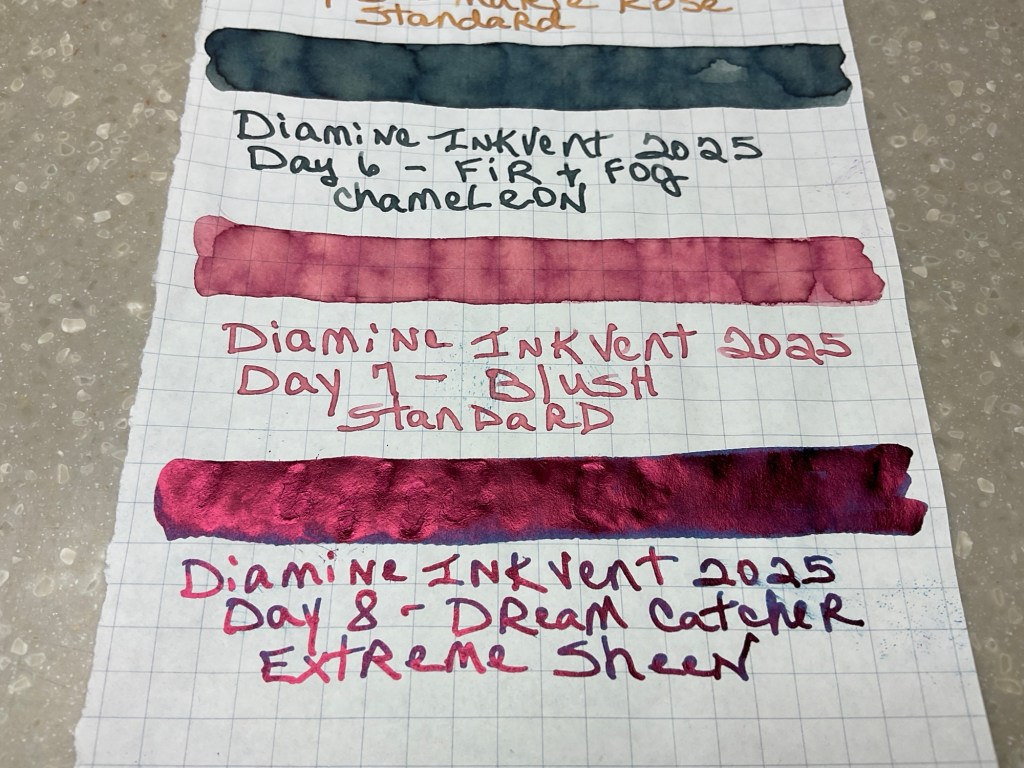 Marie Rose
Standard
Diamine Inkvent 2025
Day 6 - Fir + Fog
Chameleon
Diamine Inkvent 2025
Day 7 - Blush
Standard
Diamine Inkvent 2025
Day 8 - Dream Catcher
Extreme Sheen